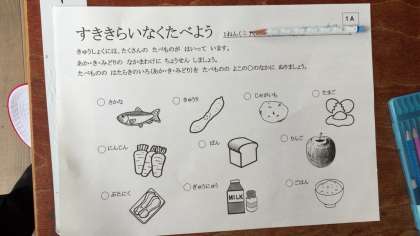 1A
すききらいなくたべよう
1ねんくみ
きゅうしょくには、たくさんの たべものが はいって います。
あか・き・みどりの なかまわけに ちょうせん しましょう。
たべものの はたらきのいろ(あか・き・みどり)を たべものの よこの○のなかに ぬりましょう。
○さかな ○きゅうり ○じゃがいも ○たまご
○にんじん ○ぱん ○りんご
○ぶたにく ○ぎゅうにゅう ○ごはん
MILK